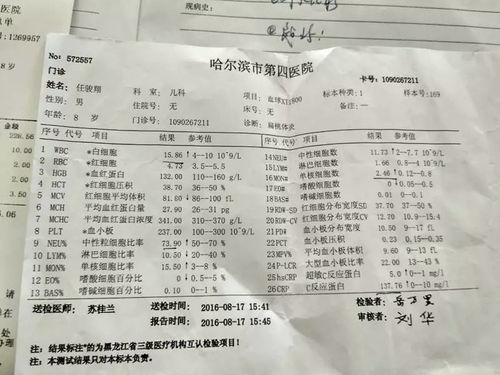 现病史:
医院
号:1269957
8岁
金额
228.56
10.00
2.00
No: 572557
哈尔滨市第四医院
门诊
卡号: 1090267211
姓名: 任骏翔 科 室: 儿科 项目: 血球XT1800 标本种类: 1 样本号: 169
性别: 男 住院号: 无 床号: 无 备注: —
年龄: 8岁 门诊号: 1090267211 诊断: 扁桃体求
序号 代号 *项目 结果 参考值 序号 代号 *项目 结果 参考值
1 WBC *白细胞 15.86 ↑ 4--10 10^9/L 14NEU# 中性细胞数 11.73 ↑ 2--7.7 10^9/L
2 RBC *红细胞 4.73 3.5--5.5 15LYM# 淋巴细胞数 1.66 0.8--4 10^9/L
3 HGB *血红蛋白 132.00 110--160 g/L 16MON# 单核细胞数 2.46 ↑ 0.12--0.8
4 HCT *红细胞压积 38.70 36--50 % 17EO# 嗜酸细胞数 0 ↓ 0.05--0.5
5 MCV 红细胞平均体积 81.80 ↓ 86--100 fL 18BAS# 嗜碱细胞数 0.01 0--0.1
6 MCH 平均血红蛋白量 27.90 26--31 pg 19RDW-SD 红细胞分布宽度SD 37.70 37--50 %
7 MCHC 平均血红蛋白浓度 341.00 310--370 g/L 20RDW-CV 红细胞分布宽度CV 12.20 10.9--15.4
8 PLT *血小板 237.00 100--300 10^9/L 血小板分布宽度 10.50 9--17 fL
9 NEU% 中性粒细胞比率 73.90 ↑ 50--70 % 22PCT 血小板压积 0.23 0.15--0.35
10 LYM% 淋巴细胞比率 10.50 ↓ 20--40 % 23MPV% 平均血小板体积 9.60 9--13 fL
11 MON% 单核细胞比率 15.50 ↑ 3--8 % 24P-LCR 大型血小板比率 22.00 13--43 %
12 EO% 嗜酸细胞百分比 0 ↓ 0.5--5 % 25hsCRP 超敏C反应蛋白 5.0 ↑ 0--1 mg/l
13 BAS% 嗜碱细胞百分比 0.10 0--1 % 26CRP C反应蛋白 137.76 ↑ 0--10 mg/L
送检医师: 苏桂兰 送检时间: 2016-08-17 15:41 检验者:
报告时间: 2016-08-17 15:45 审核者: 刘华
注: 结果标注*的为黑龙江省三级医疗机构互认检验项目!
注: 本测试结果只对本标本负责。